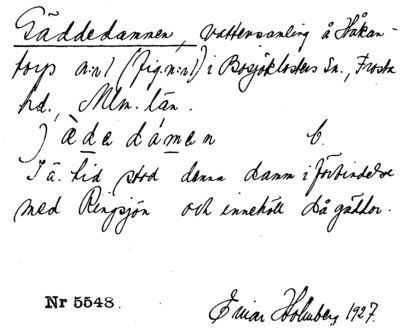 Gäddedammen, vattensamling å Håkan-
torp n:r 1 (fig. n:r 1) i Bosjöklosters sn., Frosta
hd., Mlm. län.
) ädedámen b.
I ä. tid stod denna damm i förbindelse
med Ringsjön och innehöll då gäddor.
Nr 5548.
Einar Holmberg, 1927.